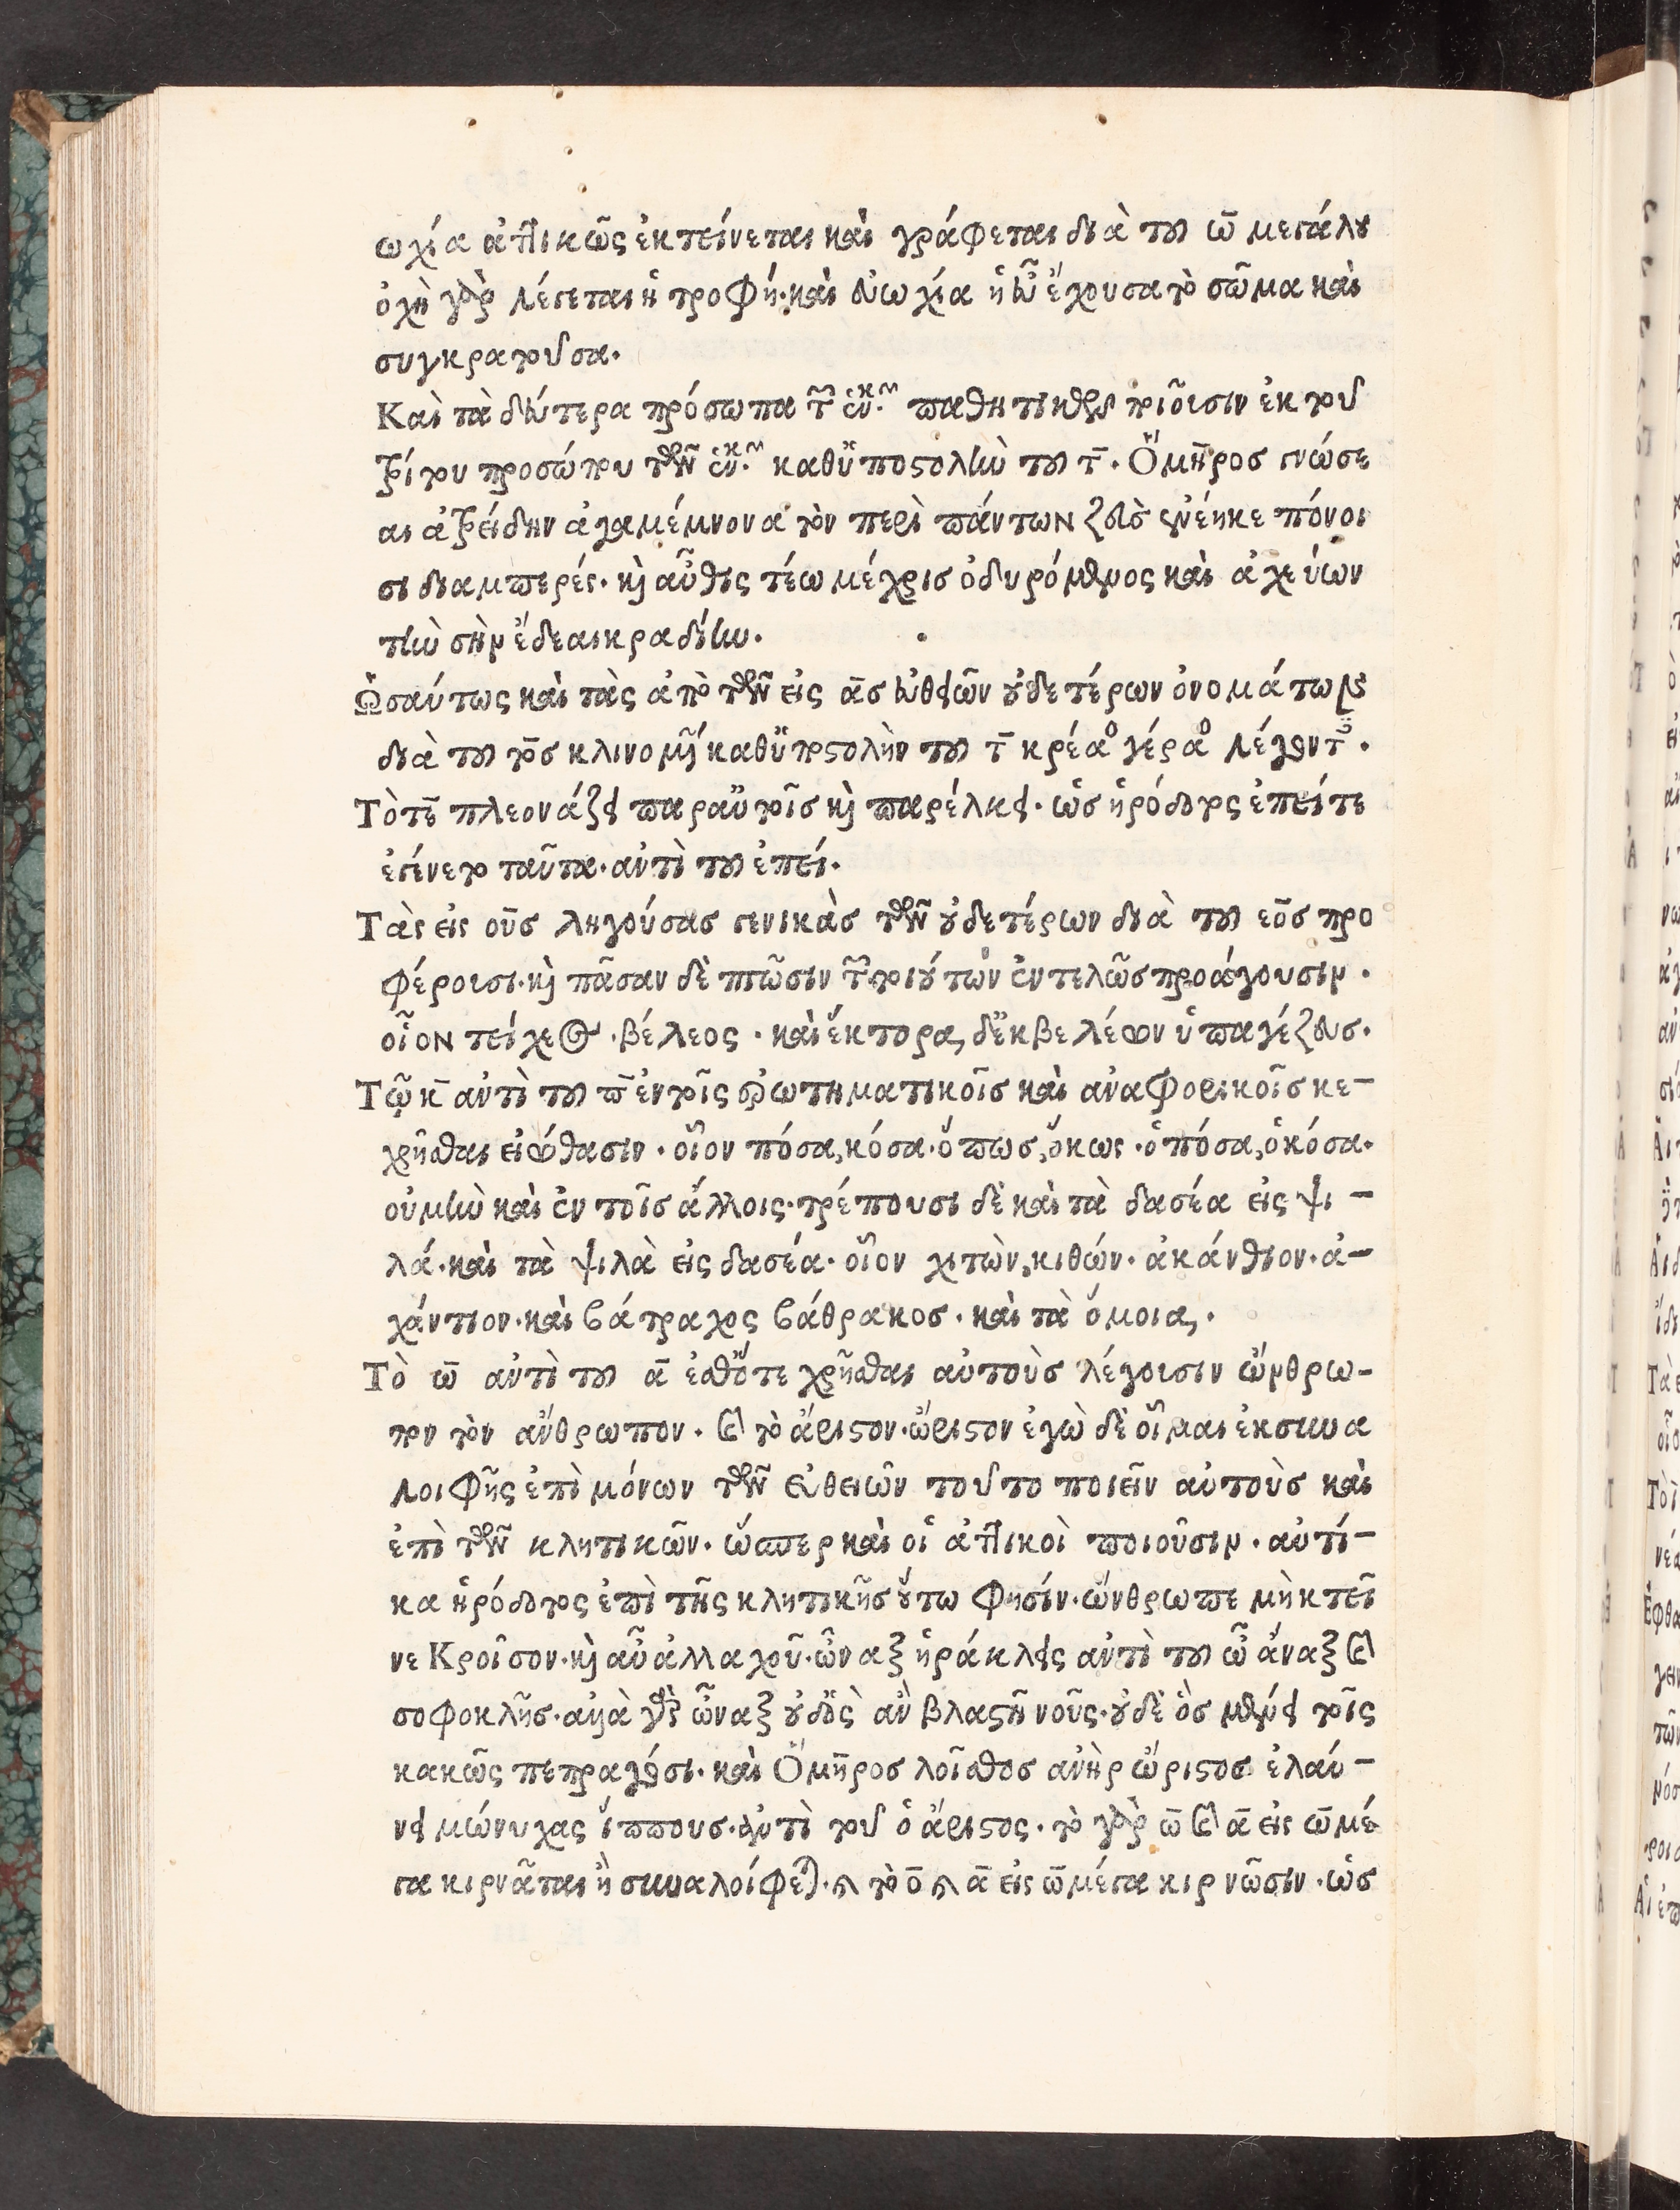 ωχία ἀττικῶς ἐκτείνεται καὶ γράφεται διὰ τοῦ ω̄ μεγάλου
ὀχὴ γὰρ λέγεται ἡ τροφή· καὶ εὐωχία ἡ εὖ ἔχουσα τὸ σῶμα καὶ
συγκρατοῦσα.
Καὶ τὰ δεύτερα πρόσωπα παθητικῶν ποιοῦσιν ἐκ τοῦ
τρίτου προσώπου τῶν καθ' ὑποστολὴν τοῦ τ̄. Ὅμηρος γνώσε
αι ἀτρείδην ἀγαμέμνονα τὸν περὶ πάντων ζεὺς ἐνέηκε πόνοι
σι διαμπερές. καὶ αὖθις τέω μέχρις ὀδυρόμενος καὶ ἀχεύων
τὴν σὴν ἔδεαι κραδίην.
Ὡσαύτως καὶ τὰς ἀπὸ τῶν εἰς ας εὐθειῶν οὐδετέρων ὀνομάτων
διὰ τοῦ τος κλινομένων καθ' ὑποστολὴν τοῦ τ̄ κρέαος γέραος λέγοντες.
Τὸ τε̄ πλεονάζει παρ' αὐτοῖς καὶ παρέλκει. ὡς ἡρόδοτος ἐπείτε
ἐγίνετο ταῦτα· ἀντὶ τοῦ ἐπεί.
Τὰς εἰς ους ληγούσας γενικὰς τῶν οὐδετέρων διὰ τοῦ εος προ
φέρουσι. καὶ πᾶσαν δὲ πτῶσιν τῶν τοιούτων ἐντελῶς προάγουσιν.
οἷον τείχεος. βέλεος. καὶ ἕκτορα, δ' ἐκ βελέων ὑπαγέ ζεύς.
Τῷ κ̄ ἀντὶ τοῦ π̄ ἐν τοῖς ἐρωτηματικοῖς καὶ ἀναφορικοῖς κε-
χρῆσθαι εἰώθασιν. οἷον πόσα, κόσα. ὅπως, ὅκως. ὁπόσα, ὁκόσα.
οὐ μὴν καὶ ἐν τοῖς ἄλλοις. τρέπουσι δὲ καὶ τὰ δασέα εἰς ψι-
λά. καὶ τὰ ψιλὰ εἰς δασέα. οἷον χιτὼν, κιθών. ἀκάνθιον. ἀ-
χάντιον. καὶ βάτραχος βάθρακος. καὶ τὰ ὅμοια,.
Τὸ ω̄ ἀντὶ τοῦ ᾱ ἐσθ' ὅτε χρῆσθαι αὐτοὺς λέγουσιν ὤνθρω-
πον τὸν ἄνθρωπον. καὶ τὸ ἄριστον. ὤριστον ἐγὼ δὲ οἶμαι ἐκ συνα
λοιφῆς ἐπὶ μόνων τῶν εὐθειῶν τοῦτο ποιεῖν αὐτοὺς καὶ
ἐπὶ τῶν κλητικῶν. ὥσπερ καὶ οἱ ἀττικοὶ ποιοῦσιν. αὐτί-
κα ἡρόδοτος ἐπὶ τῆς κλητικῆς οὕτω φησίν. ὤνθρωπε μὴ κτεῖ
νε Κροῖσον. καὶ αὖ ἀλλαχοῦ. ὦναξ ἡράκλεις ἀντὶ τοῦ ὦ ἄναξ καὶ
σοφοκλῆς. ἀλλὰ γὰρ ὦναξ οὐδ' ὃς ἂν βλαστῇ νοῦς. οὐδὲ ὃς μένει τοῖς
κακῶς πεπραγόσι. καὶ Ὅμηρος λοῖσθος ἀνὴρ ὤριστος ἐλαύ-
νει μώνυχας ἵππους. ἀντὶ τοῦ ὁ ἄριστος. τὸ γὰρ ω̄ καὶ ᾱ εἰς ω̄ μέ
γα κιρνᾶται ἢ συναλοίφεται. καὶ τὸ ο̄ καὶ ᾱ εἰς ω̄ μέγα κιρνῶσιν. ὡς